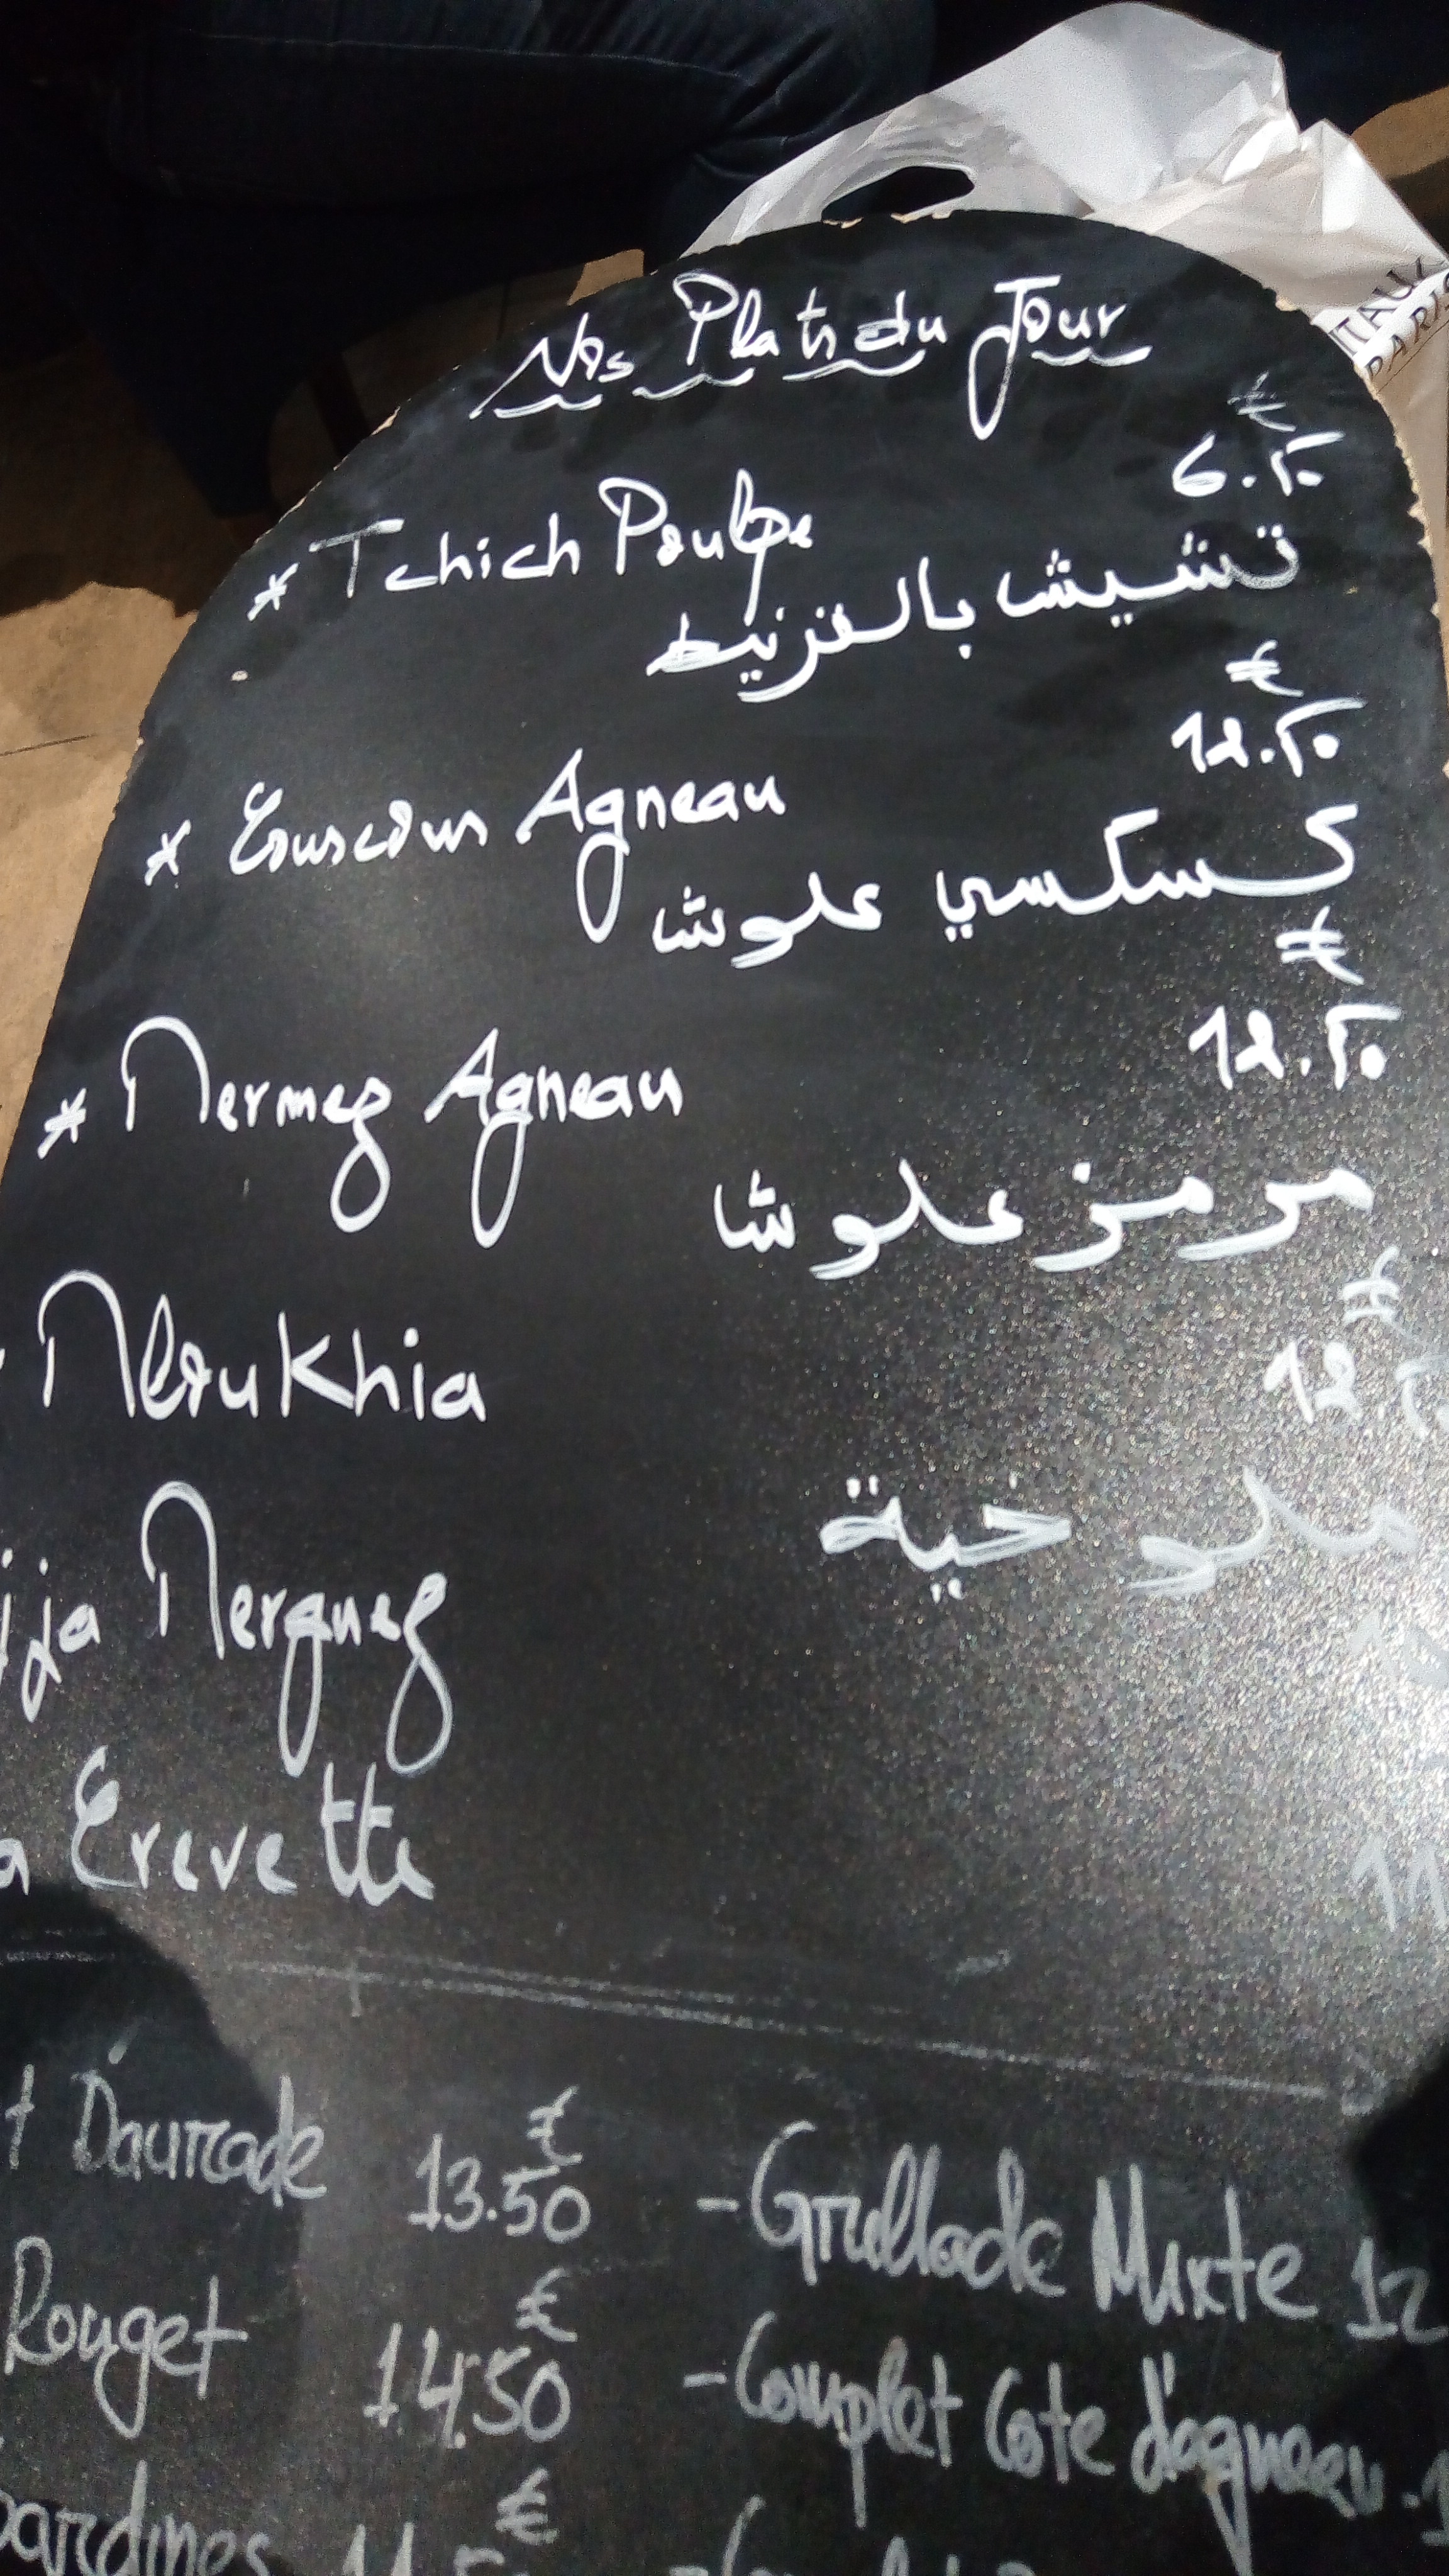 Nos Plats du Jour
€
* Tchich Poulpe 6.50
تشيش بالقرنيط
€
* Couscous Agneau 12.50
كسكسي علوش
€
* Mermez Agneau 12.50
مرمز علوش
€
Mloukhia 12
ملوخية
jja Merguez
a Crevette 11
€
t Daurade 13.50 - Grillade Mixte 12
€
Rouget 14.50 - Complet Cote d'agneau.
€
ardines